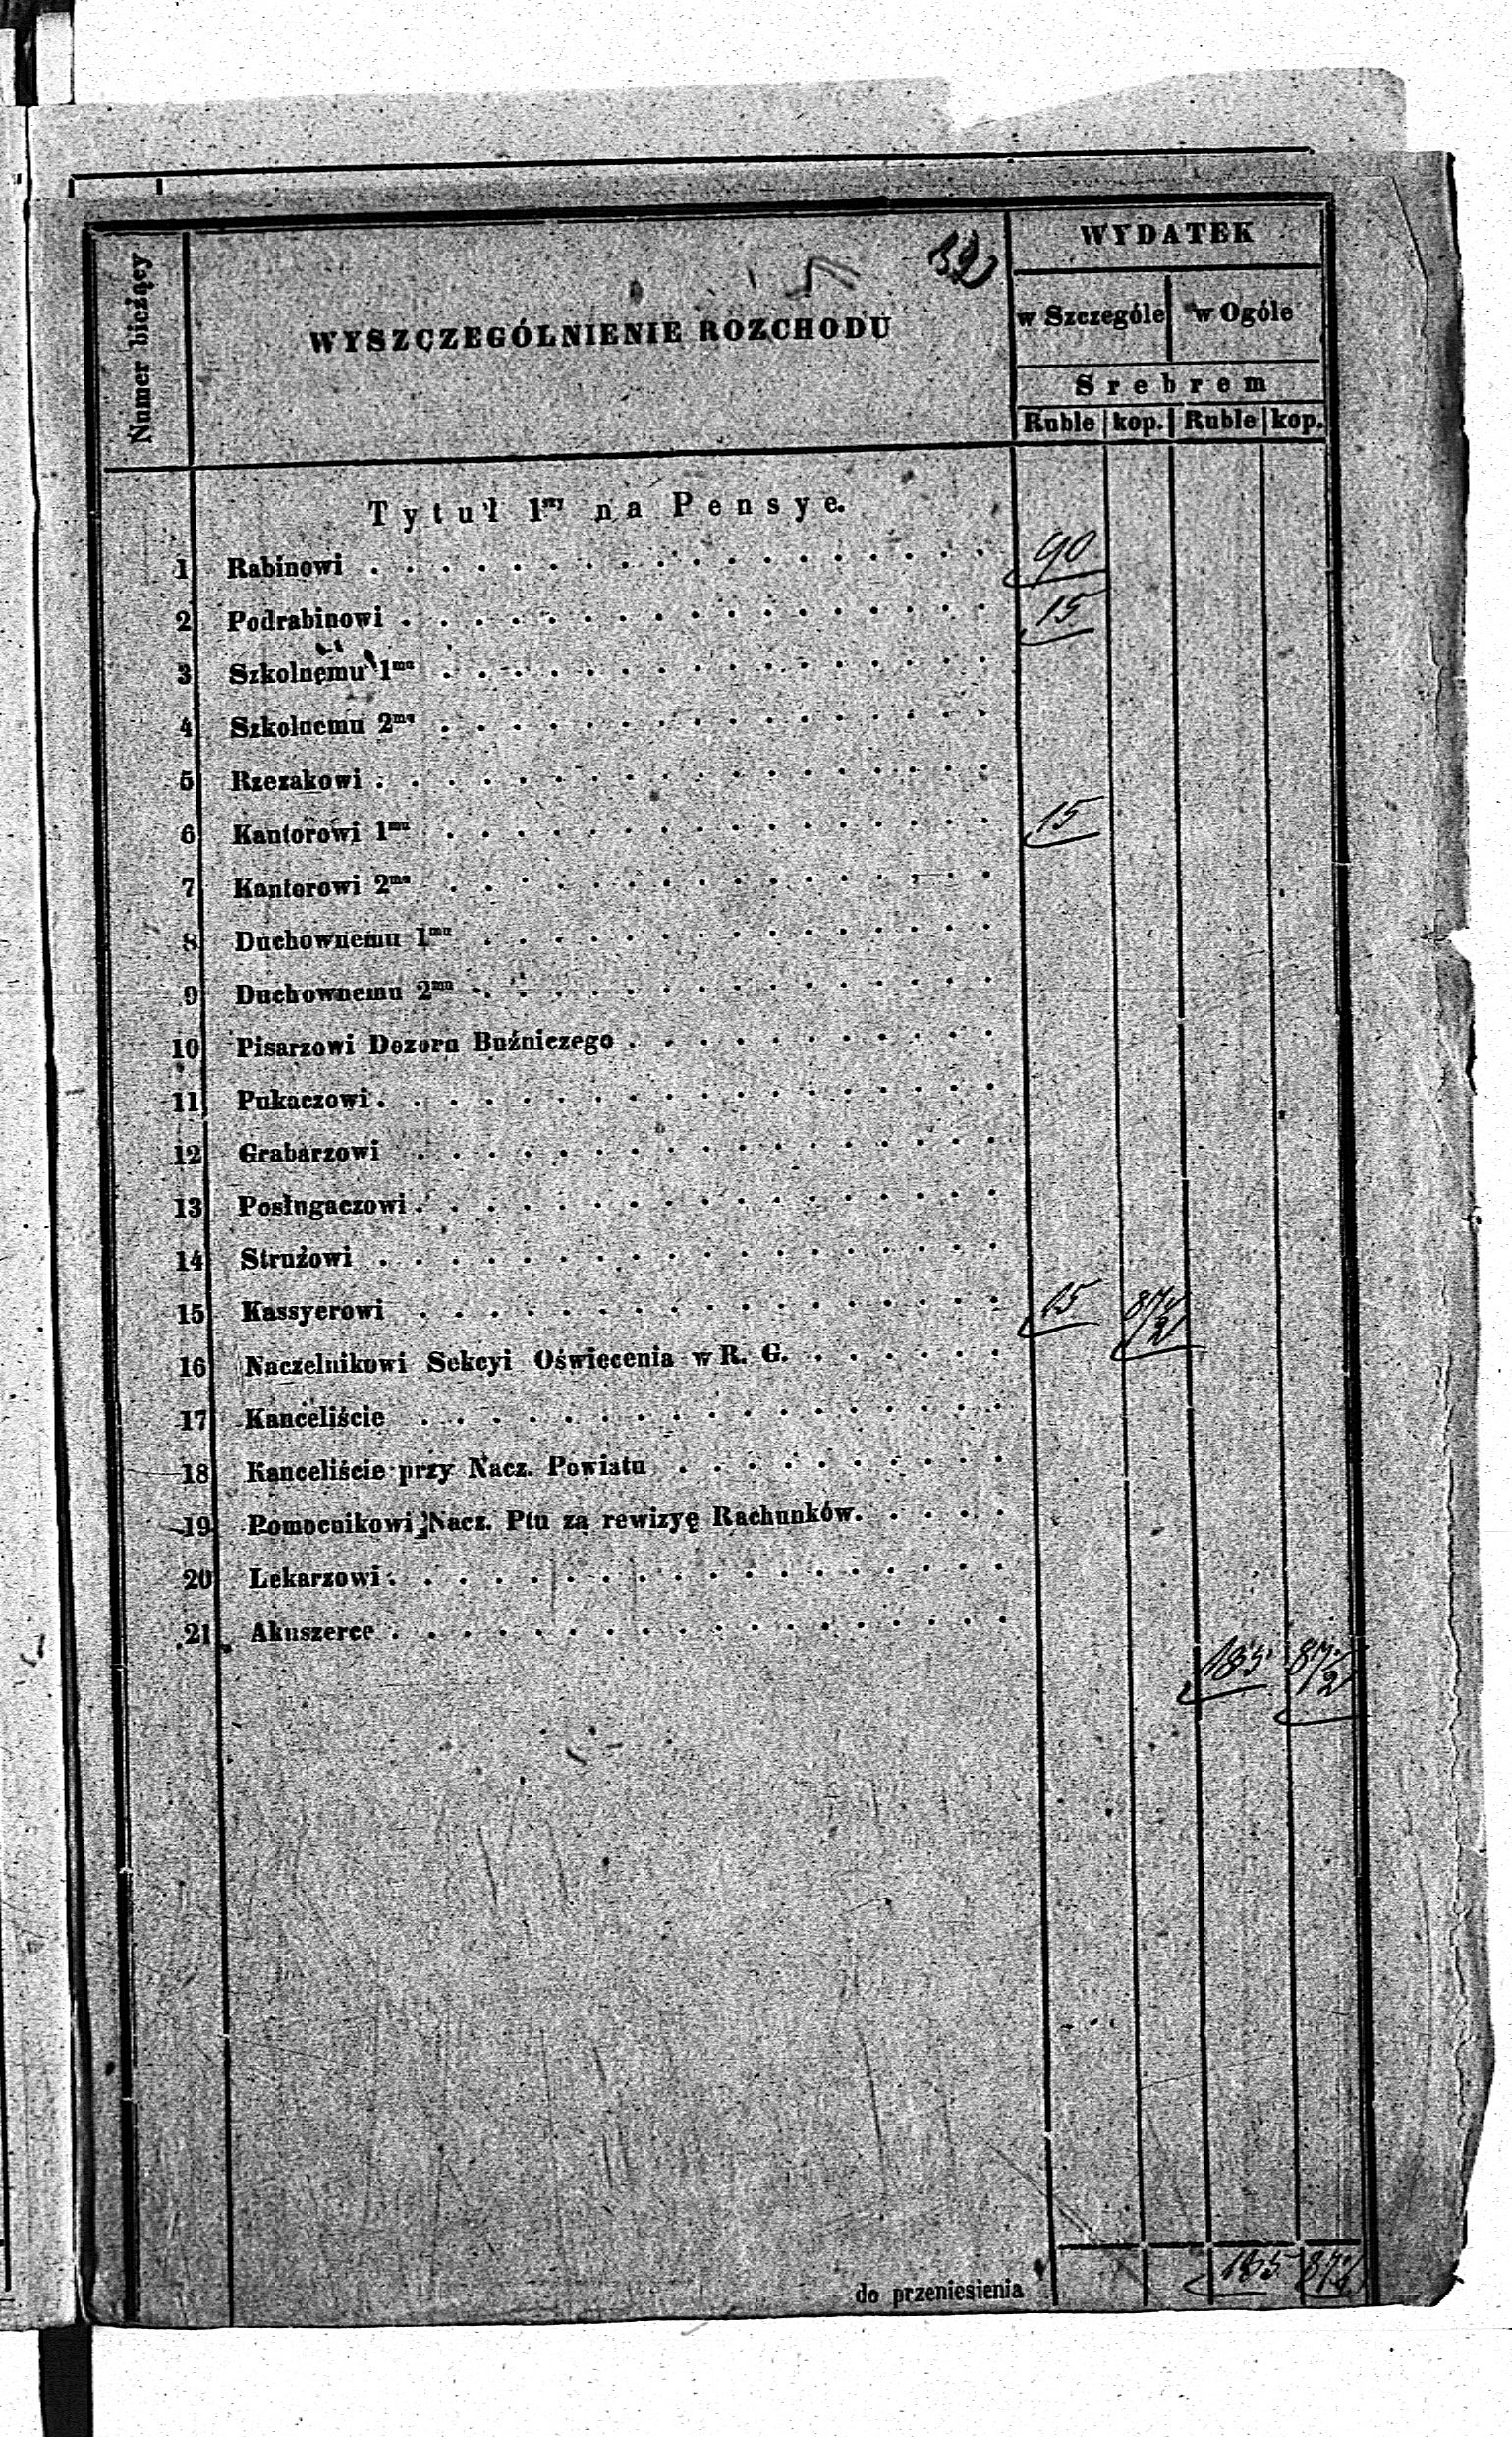 39
Numer bieżący
WYSZCZEGÓLNIENIE ROZCHODU
WYDATEK
w Szczególe w Ogóle
Srebrem
Ruble kop. Ruble kop.
Tytuł 1ny na Pensye.
1 Rabinowi . . . . . . . . . . . . . . . . . . 90
2 Podrabinowi . . . . . . . . . . . . . . . . . 15
3 Szkolnemu 1mu . . . . . . . . . . . . . . . .
4 Szkolnemu 2mu . . . . . . . . . . . . . . . .
5 Rzezakowi . . . . . . . . . . . . . . . . . .
6 Kantorowi 1mu . . . . . . . . . . . . . . . . 15
7 Kantorowi 2mu . . . . . . . . . . . . . . . .
8 Duchownemu 1mu . . . . . . . . . . . . . . .
9 Duchownemu 2mu . . . . . . . . . . . . . . .
10 Pisarzowi Dozoru Buźniczego . . . . . . . . . . .
11 Pukaczowi . . . . . . . . . . . . . . . . . .
12 Grabarzowi . . . . . . . . . . . . . . . . .
13 Posługaczowi . . . . . . . . . . . . . . . . .
14 Strużowi . . . . . . . . . . . . . . . . . .
15 Kassyerowi . . . . . . . . . . . . . . . . . 15 87 1/2
16 Naczelnikowi Sekcyi Oświecenia w R. G. . . . . . .
17 Kanceliście . . . . . . . . . . . . . . . . .
18 Kanceliście przy Nacz. Powiatu . . . . . . . . . .
19 Pomocnikowi Nacz. Ptu za rewizyę Rachunków. . . . .
20 Lekarzowi . . . . . . . . . . . . . . . . . .
21 Akuszerce . . . . . . . . . . . . . . . . . .
135 87 1/2
do przeniesienia 135 87 1/2